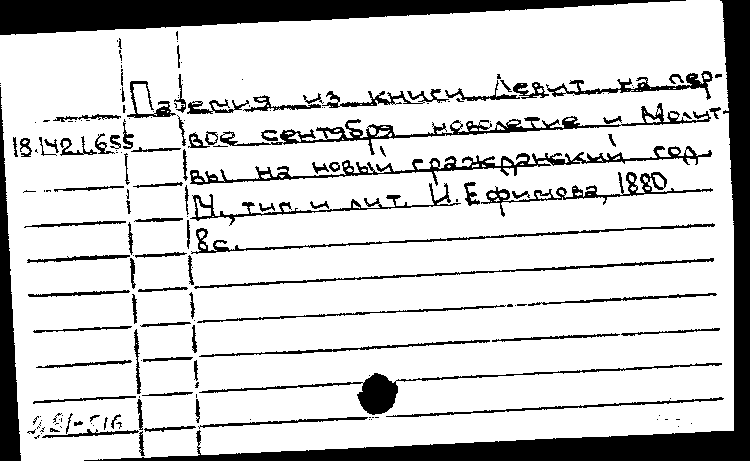 Паремия из книги Левит на пер-
18.142.1.655. вое сентября новолетие и Молит-
вы на новый гражданский год.
М., тип. и лит. И. Ефимова, 1880.
8с.